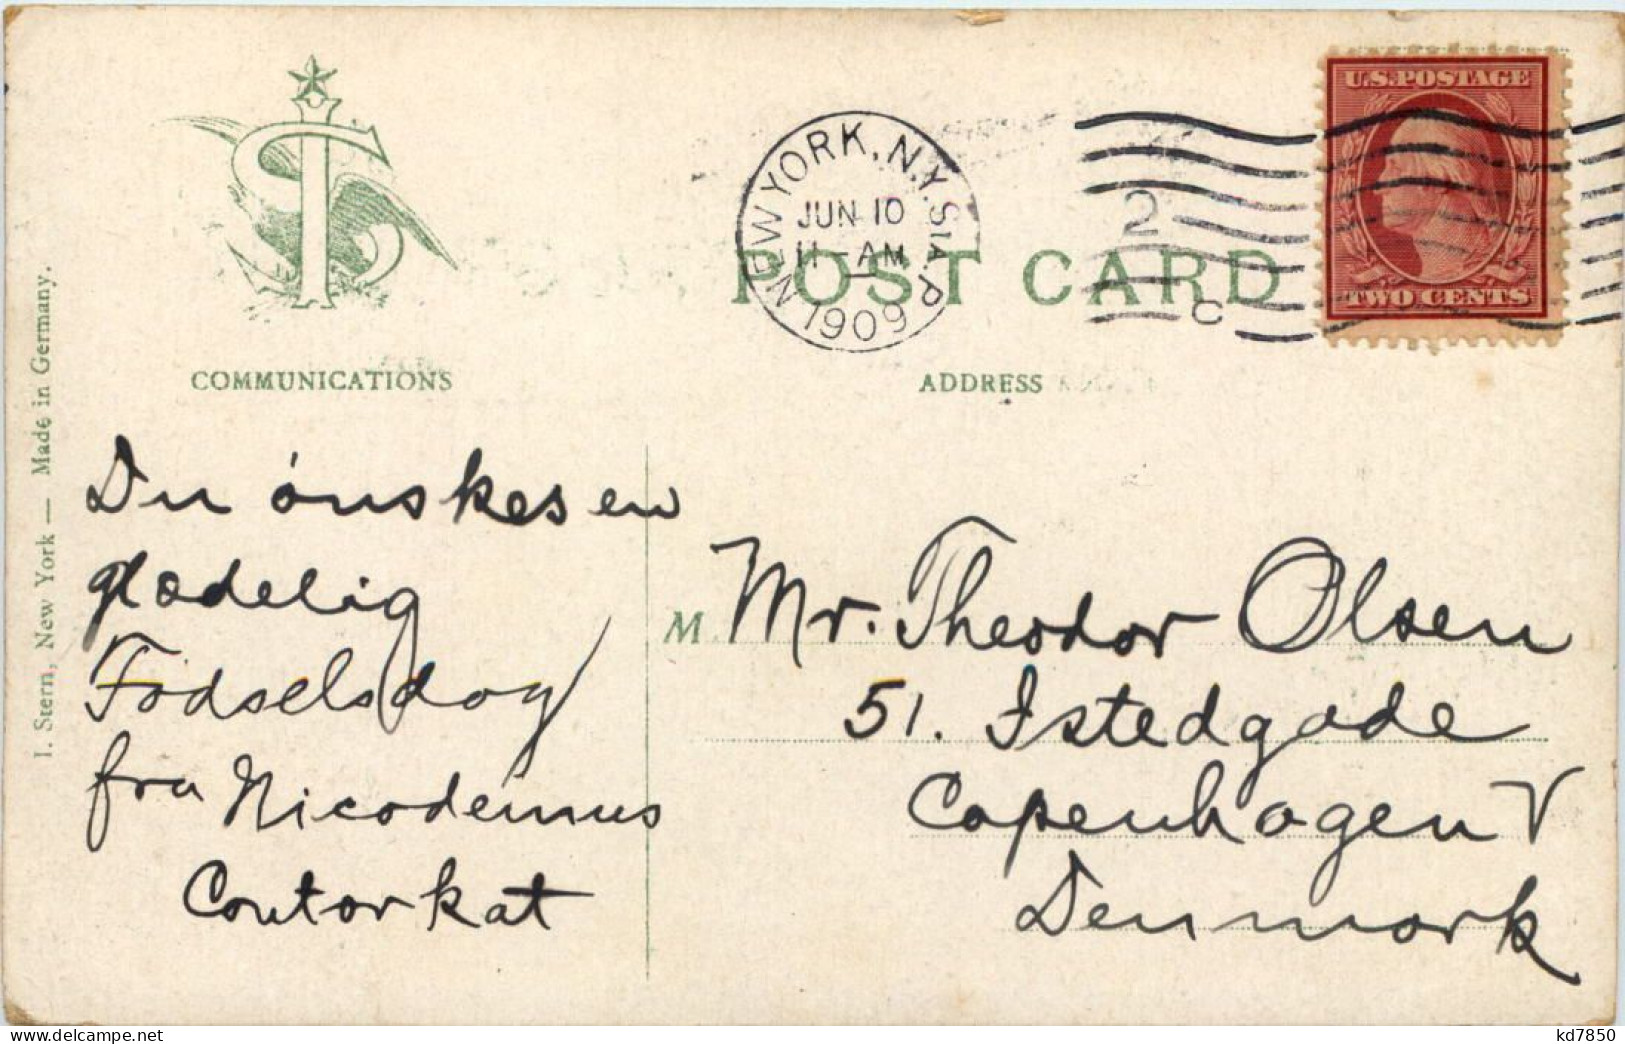 U.S. POSTAGE
TWO CENTS
NEW YORK, N.Y. STA. P
JUN 10
11-AM
1909
2
C
POST CARD
COMMUNICATIONS
ADDRESS
I. Stern, New York — Made in Germany.
Du ónskes en
glædelig
Fódselsdag
fra Nicodemus
Contorkat
M Mr. Theodor Olsen
51. Istedgade
Copenhagen V
Denmark
delcampe.net
kd7850